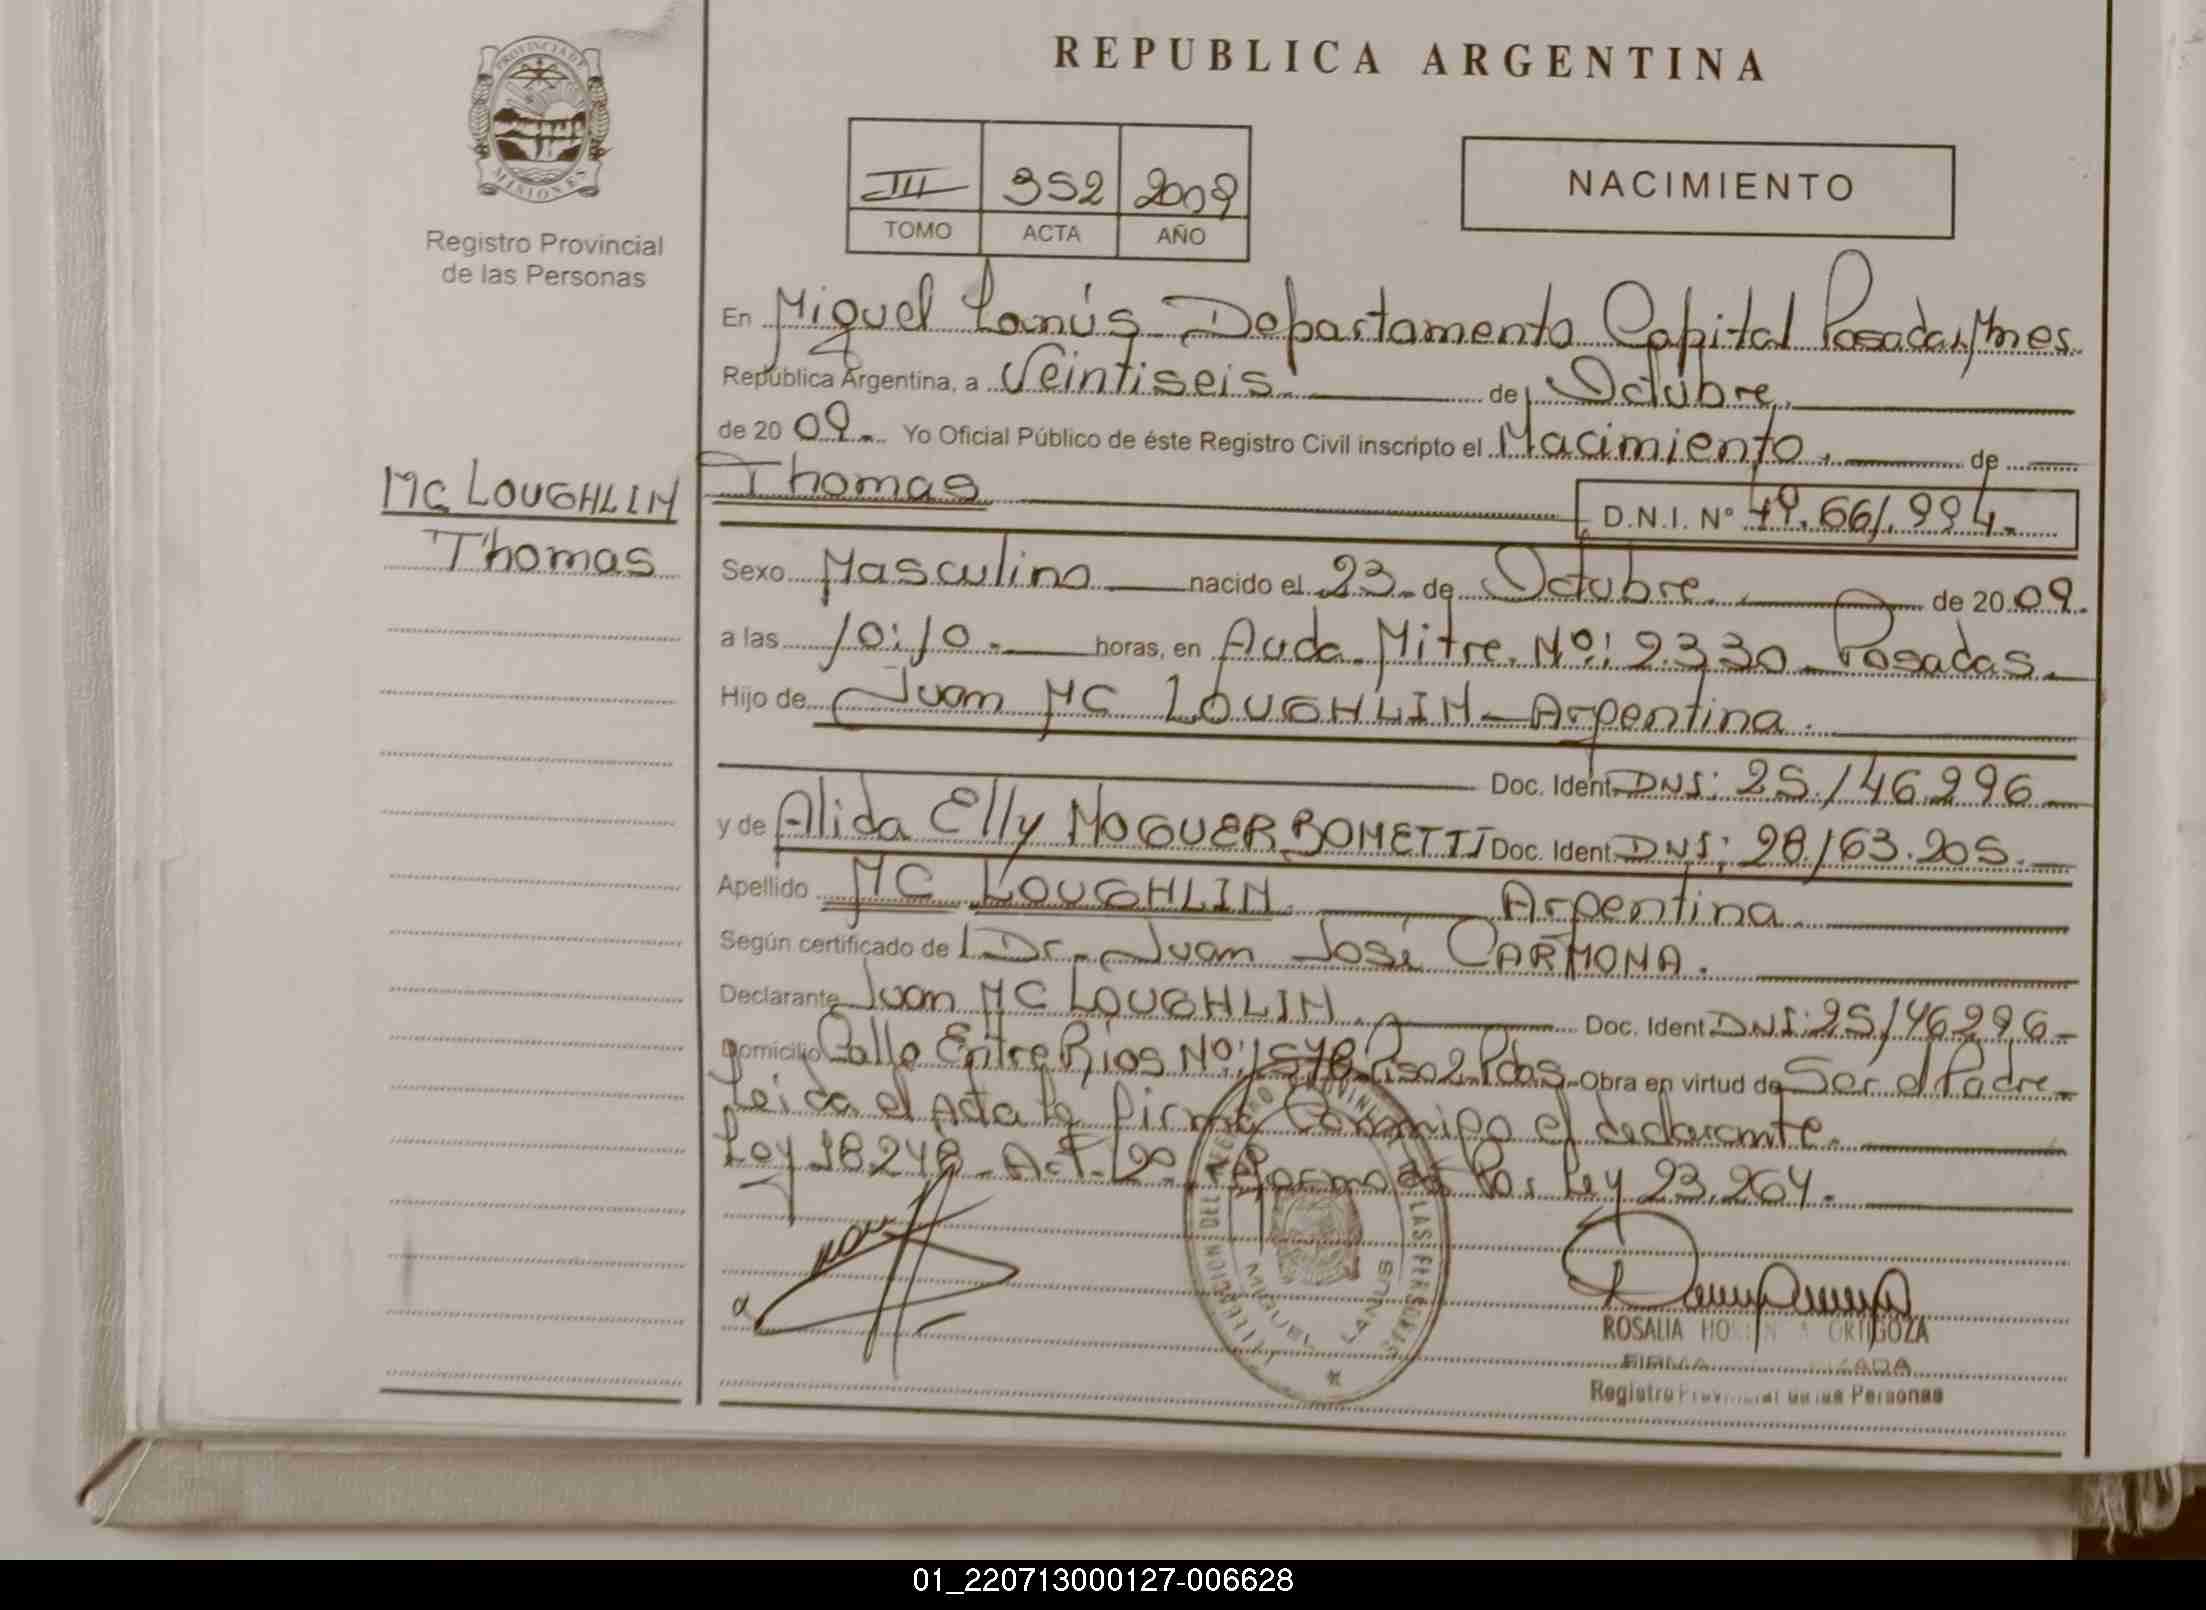 PROVINCIA DE
MISIONES
Registro Provincial
de las Personas
REPUBLICA ARGENTINA
III 352 2009
TOMO ACTA AÑO
NACIMIENTO
En Miguel Lanús Departamento Capital Posadas, Mnes.
República Argentina, a Veintiseis de Octubre.
de 20 09. Yo Oficial Público de éste Registro Civil inscripto el Nacimiento. de
MC LOUGHLIN
Thomas
Thomas
D.N.I. Nº 49.661.994.
Sexo Masculino nacido el 23. de Octubre. de 20 09.
a las 10:10. horas, en Avda. Mitre. Nº: 2330 Posadas.
Hijo de Juan MC LOUGHLIN - Argentina.
Doc. Ident. DNI: 25.146.296
y de Alida Elly NOGUER BONETTI Doc. Ident. DNI: 28.163.205.
Apellido MC LOUGHLIN. Argentina.
Según certificado de Dr. Juan José CARMONA.
Declarante Juan MC LOUGHLIN. Doc. Ident DNI: 25.146.296-
Domicilio Calle Entre Rios Nº: Piso 2. Pdas. Obra en virtud de Ser el Padre.
Leida el Acta la firma Conmigo el declarante.
Ley 18.248. Art. 20. reformada Por Ley 23.264.
MIGUEL LANUS
ROSALIA ORTIGOZA
FIRMA
Registro Provincial de las Personas
01_220713000127-006628